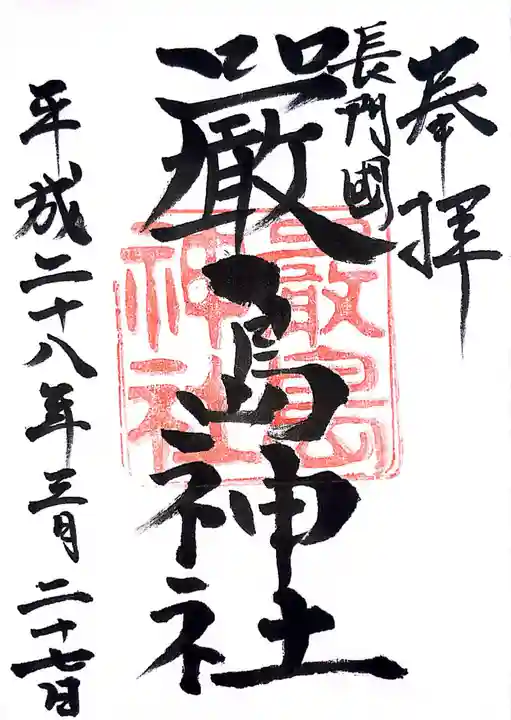 奉拝
長門國
厳島神社
嚴島神社
平成二十八年三月二十七日